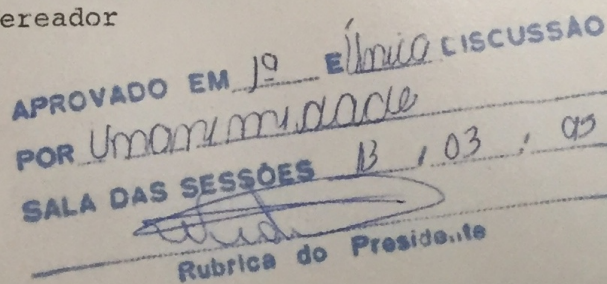 ereador
APROVADO EM 1ª E Única CISCUSSÃO
POR Unanimidade
SALA DAS SESSÕES 13 / 03 / 95
Rubrica do Presidente